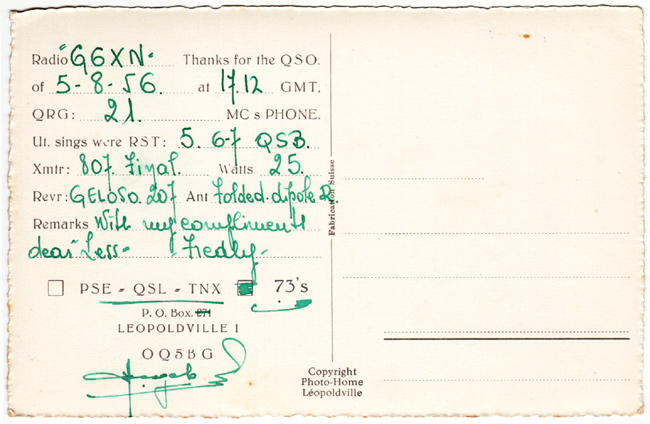 Radio G6XN. Thanks for the QSO.
of 5-8-56. at 17.12 GMT.
QRG: 21. MC s PHONE.
Ut. sings were RST: 5. 6-7 QSB.
Xmtr: 807 Final. Watts 25.
Revr: GELOSO. 207 Ant Folded. dipole
Remarks With my compliments
dear Less- Fredly-
PSE - QSL - TNX 73's
P. O. Box. 271
LEOPOLDVILLE I
OQ5BG
Fabrication Suisse
Copyright
Photo-Home
Léopoldville